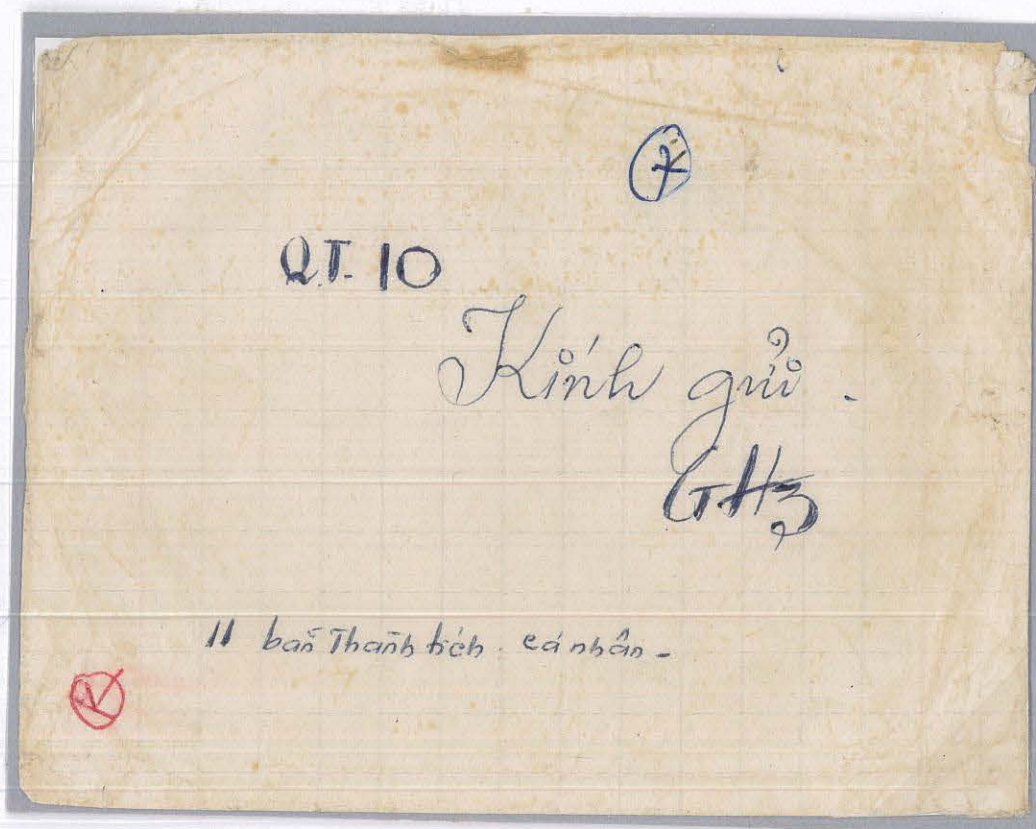 Q.T. 10
Kính gửi -
GH3
11 bản Thành tích. cá nhân -